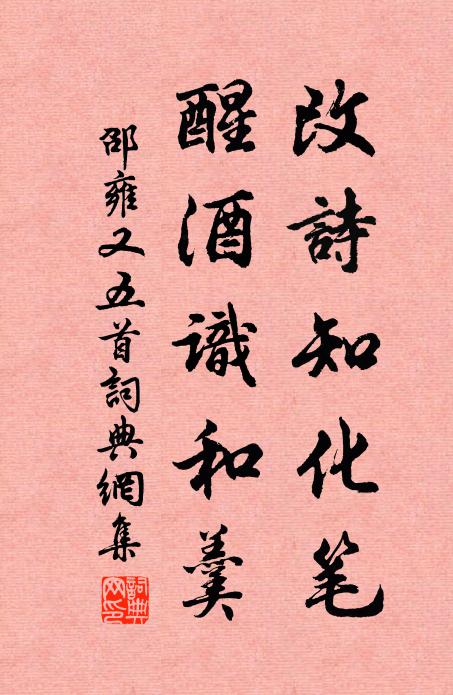 改詩知化笔
醒酒識和羹
邵雍又五首詞典網集
詞典
网印